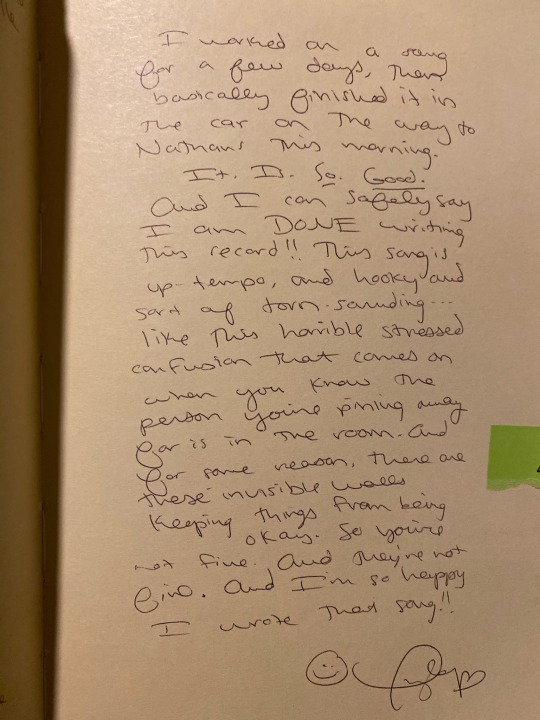 I worked on a song
for a few days, then
basically finished it in
the car on the way to
Nathans this morning.
It. Is. So. Good.
And I can safely say
I am DONE writing
this record!! This song is
up-tempo, and hooky and
sort of torn-sounding...
like this horrible stressed
confusion that comes on
when you know the
person you're pining away
for is in the room. And
for some reason, there are
these invisible walls
keeping things from being
okay. So you're
not fine. And they're not
fine. And I'm so happy
I wrote that song!!